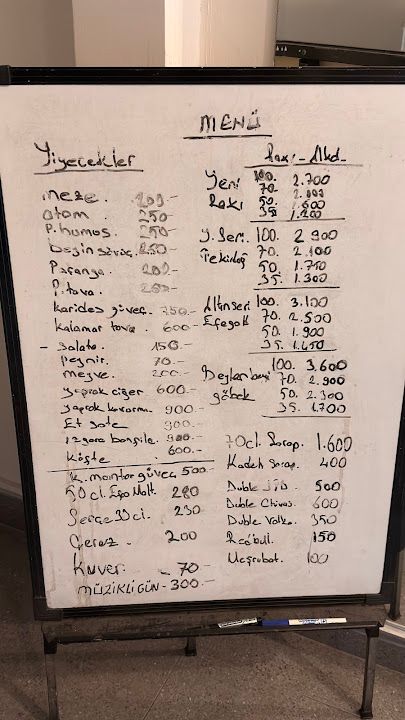 MENÜ
Yiyecekler
meze. 200.-
atom 250-
P.humos. 250-
250-
Paçanga. 200.-
P.tava. 200-
Karides güveç. 750.-
Kalamar tava. 600-
- Salata. 150.-
Peynir. 70.-
meyve. 200.-
yaprak ciğer 600.-
yaprak kavurma. 900.-
Et sote 900.-
ızgara bonfile. 900.-
Köfte 600.-
K. mantar güveç 500.-
50 cl. Efe Malt. 280
33 cl. 230
Çerez. 200
Kuver. - 70-
MÜZİKLİ GÜN - 300.-
Rakı - Alkol
Yeni Rakı 100. 2.700
70. 2.000
50. 1.600
35. 1.200
Y. Seri. Tekirdağ 100. 2 900
70. 2.100
50. 1.750
35. 1.300
Altınseri Efegold 100. 3.100
70. 2.500
50. 1.900
35. 1.450
Beylerbeyi göbek 100. 3.600
70. 2.900
50. 2.300
35. 1.700
70cl. Şarap. 1.600
Kadeh Şarap. 400
Duble 500
Duble Chivas. 600
Duble Votka. 350
Redbull. 150
Meşrubat. 100